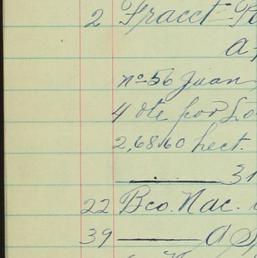 2 Fracct.
a
nº 56 Juan
4 ote por Lo
2,6860 hect.
31
22 Bco. Nac.
39 a S